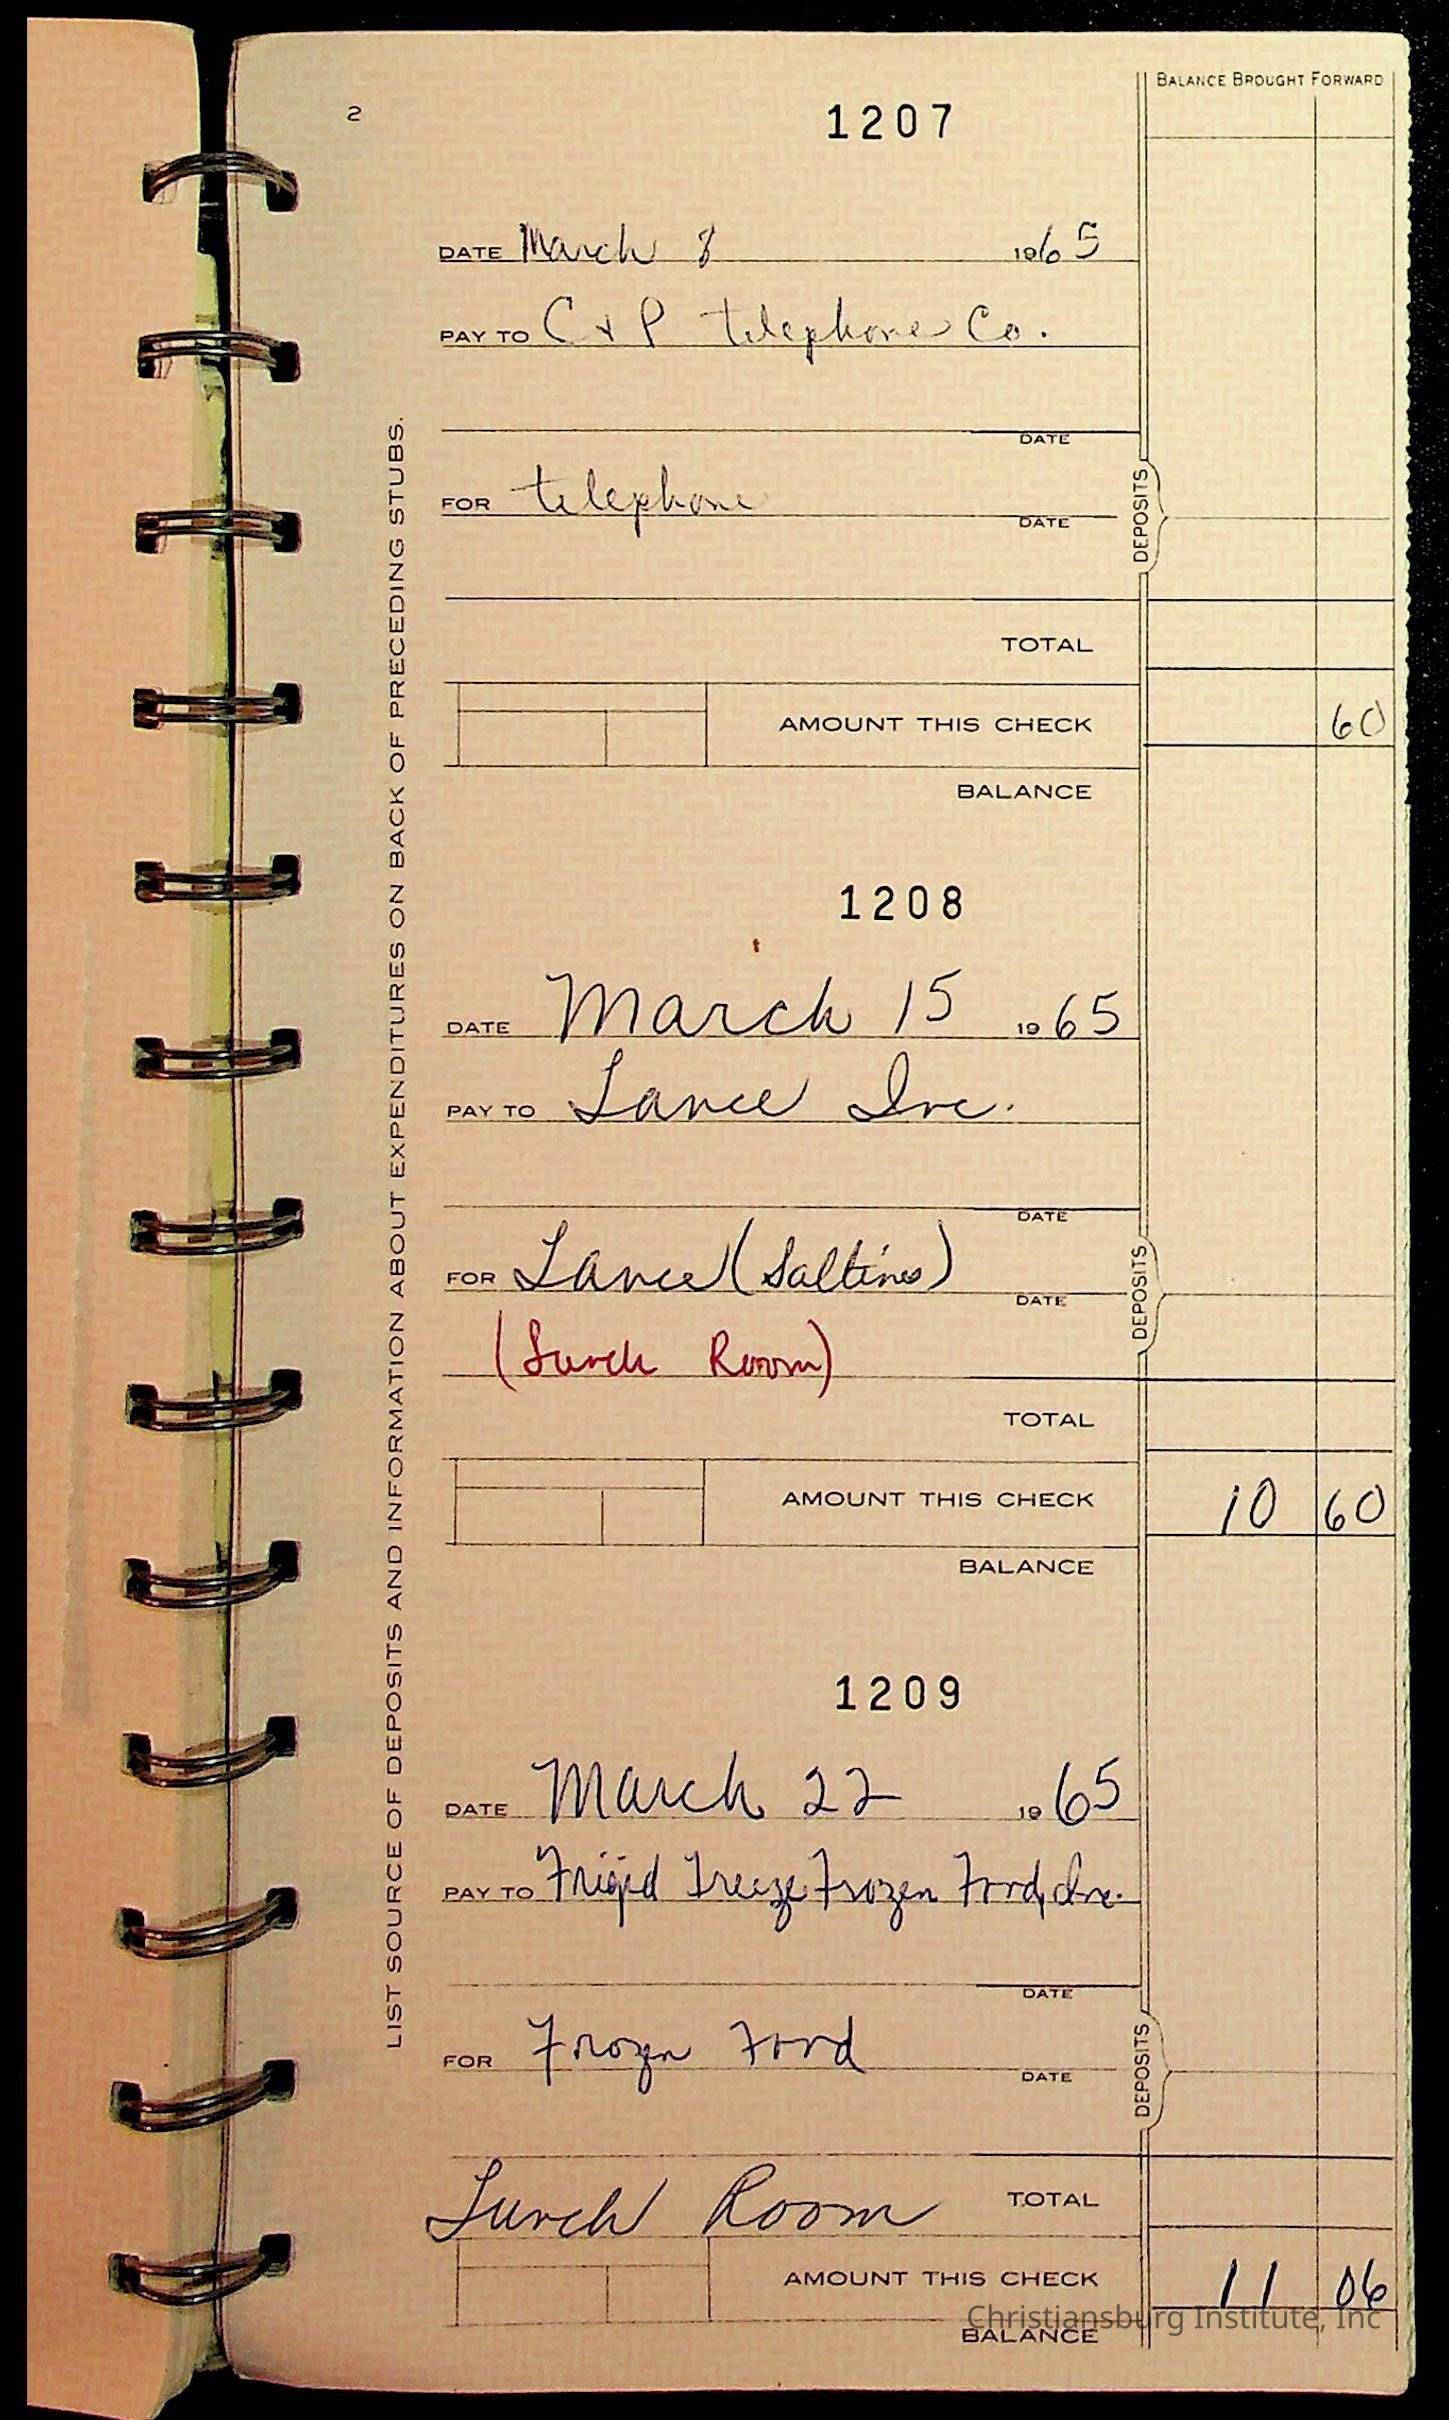 2
1207
BALANCE BROUGHT FORWARD
DATE March 8 1965
PAY TO C + P telephone Co.
DATE
FOR telephone
DATE
DEPOSITS
TOTAL
AMOUNT THIS CHECK 60
BALANCE
LIST SOURCE OF DEPOSITS AND INFORMATION ABOUT EXPENDITURES ON BACK OF PRECEDING STUBS.
1208
DATE March 15 1965
PAY TO Lance Inc.
DATE
FOR Lance (Saltines)
DATE
DEPOSITS
(Lunch Room)
TOTAL
AMOUNT THIS CHECK 10 60
BALANCE
1209
DATE March 22 1965
PAY TO Frigid Freeze Frozen Food, Inc.
DATE
FOR Frozen Food
DATE
DEPOSITS
Lunch Room TOTAL
AMOUNT THIS CHECK 11 06
Christiansburg Institute, Inc
BALANCE